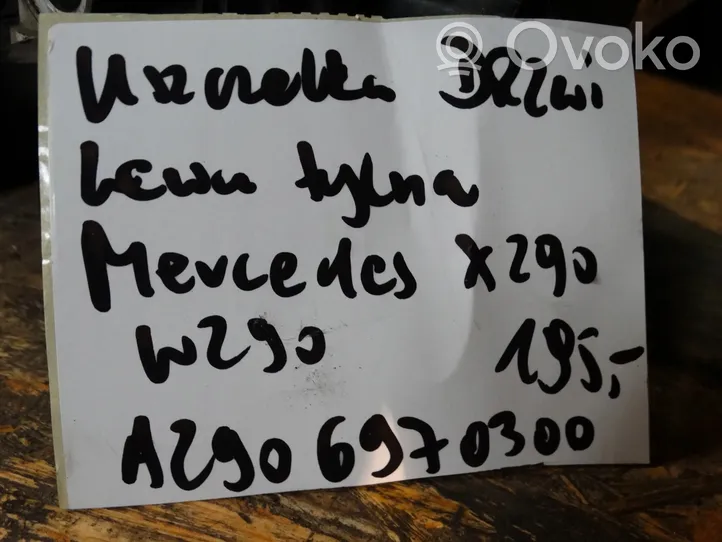 Ovoko
Uszczelka DRZwi
Lewa tylna
Mercedes X290
W290 195,-
A290 697 0300